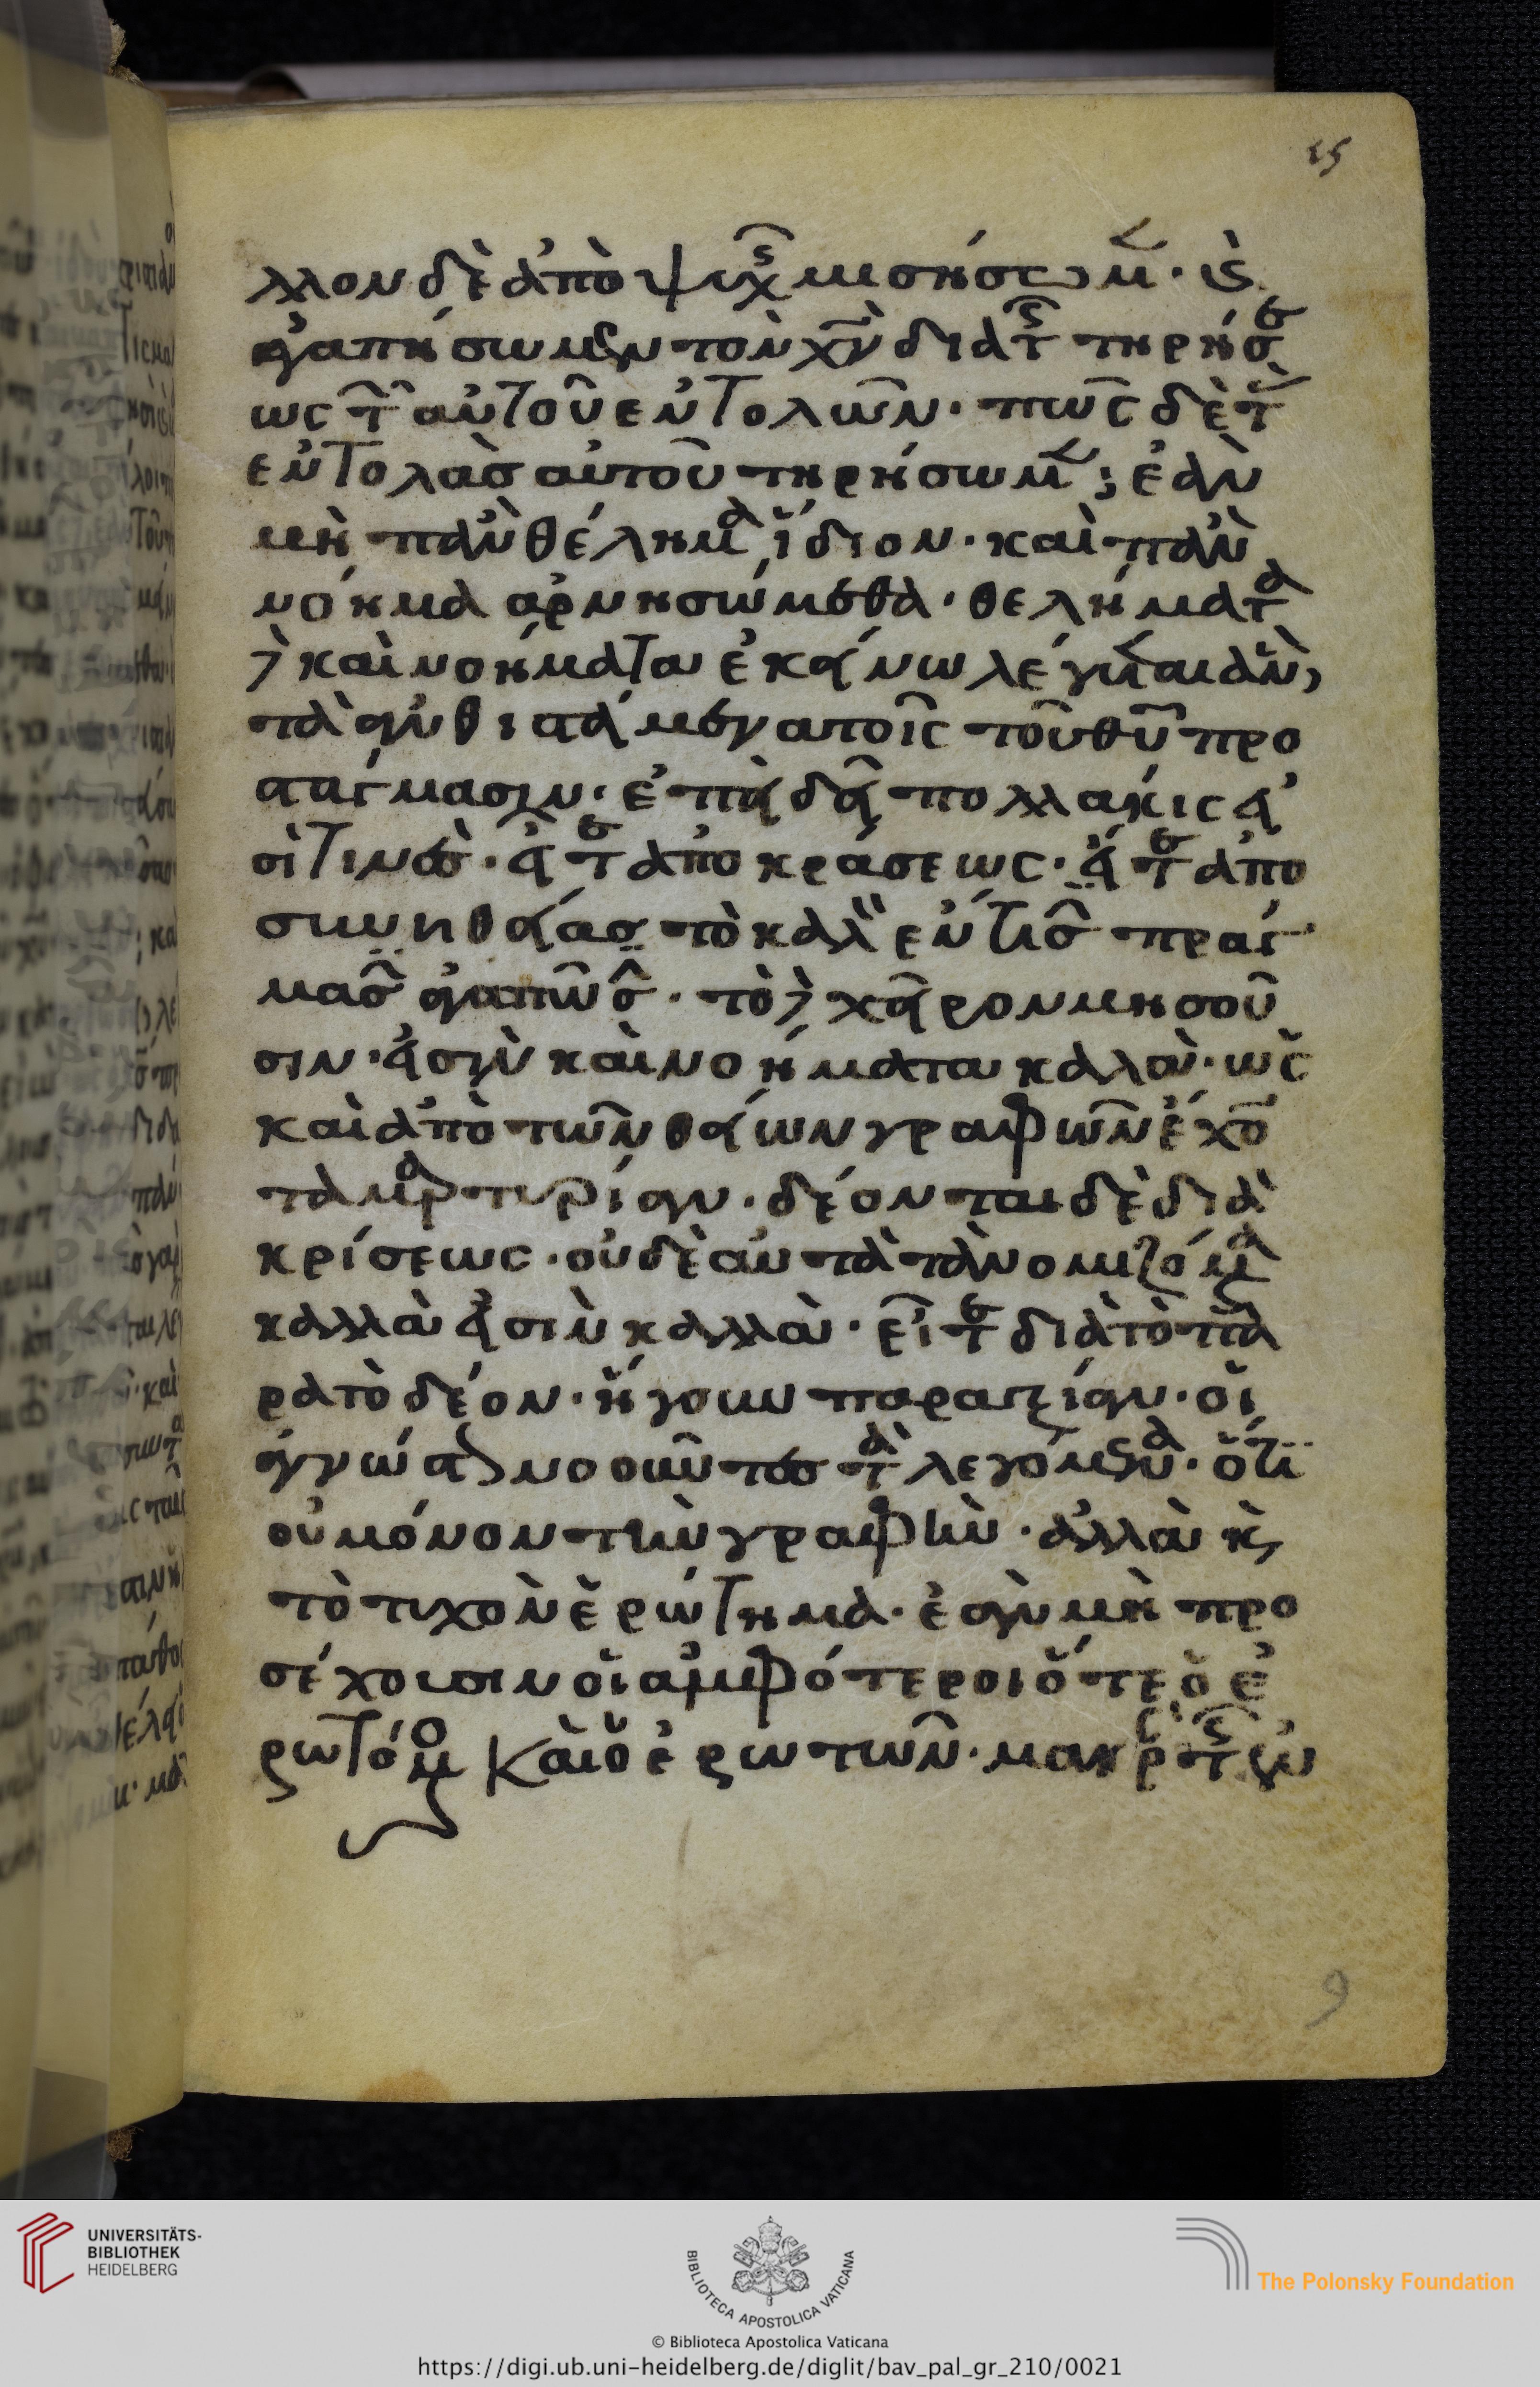 15
λλον δὲ ἀπὸ ψυχῆς μισήσωμεν. ἵν
ἀγαπήσωμεν τὸν χν διὰ τῆς τηρήσε
ως τῶν αὐτοῦ ἐντολῶν. πῶς δὲ τὰς
ἐντολὰσ αὐτοῦ τηρήσωμεν; ἐὰν
μὴ πᾶν θέλημα ἴδιον. καὶ πᾶν
νόημα ἀρνησώμεθα. θελήματα
δὲ καὶ νοήματα ἐκείνω λέγει
τὰ ἀνθιστάμενα τοῖς τοῦ θυ προ
στάγμασιν. ἐπειδὴ πολλάκις εἰ
σί τινεσ. εἴτε ἀπὸ κράσεως. εἴτε ἀπὸ
συνηθείασ τὸ καλὸν ἐν τισὶ πράγ
μασιν ἀγαπῶσι. τὸ δὲ χεῖρον μισοῦ
σιν. εἰσὶν καὶ νοήματα καλὰ. ὡς
καὶ ἀπὸ τῶν θείων γραφῶν ἔχον
τα μαρτυρίαν. δέονται δὲ δια
κρίσεως. οὐδὲ αὐτὰ τὰ νομιζόμενα
καλλὰ εἰσὶν καλλὰ. εἴτε διὰ τὸ πα
ρὰ τὸ δέον. ἤγουν παραξίαν. οἱ
ἀγνωσία νοοῦντεσ τὰ λεγόμενα. ὅτι
οὐ μόνον τὴν γραφὴν. ἀλλὰ καὶ
τὸ τυχὸν ἐρώτημα. ἐὰν μὴ προ
σέχουσιν οἱ ἀμφότεροι ὅ τε ὁ ἐ
ρωτόμενος καὶ ὁ ἐρωτῶν. μακρὸς τῶν
9
UNIVERSITÄTS-
BIBLIOTHEK
HEIDELBERG
BIBLIOTECA APOSTOLICA VATICANA
The Polonsky Foundation
© Biblioteca Apostolica Vaticana
https://digi.ub.uni-heidelberg.de/diglit/bav_pal_gr_210/0021